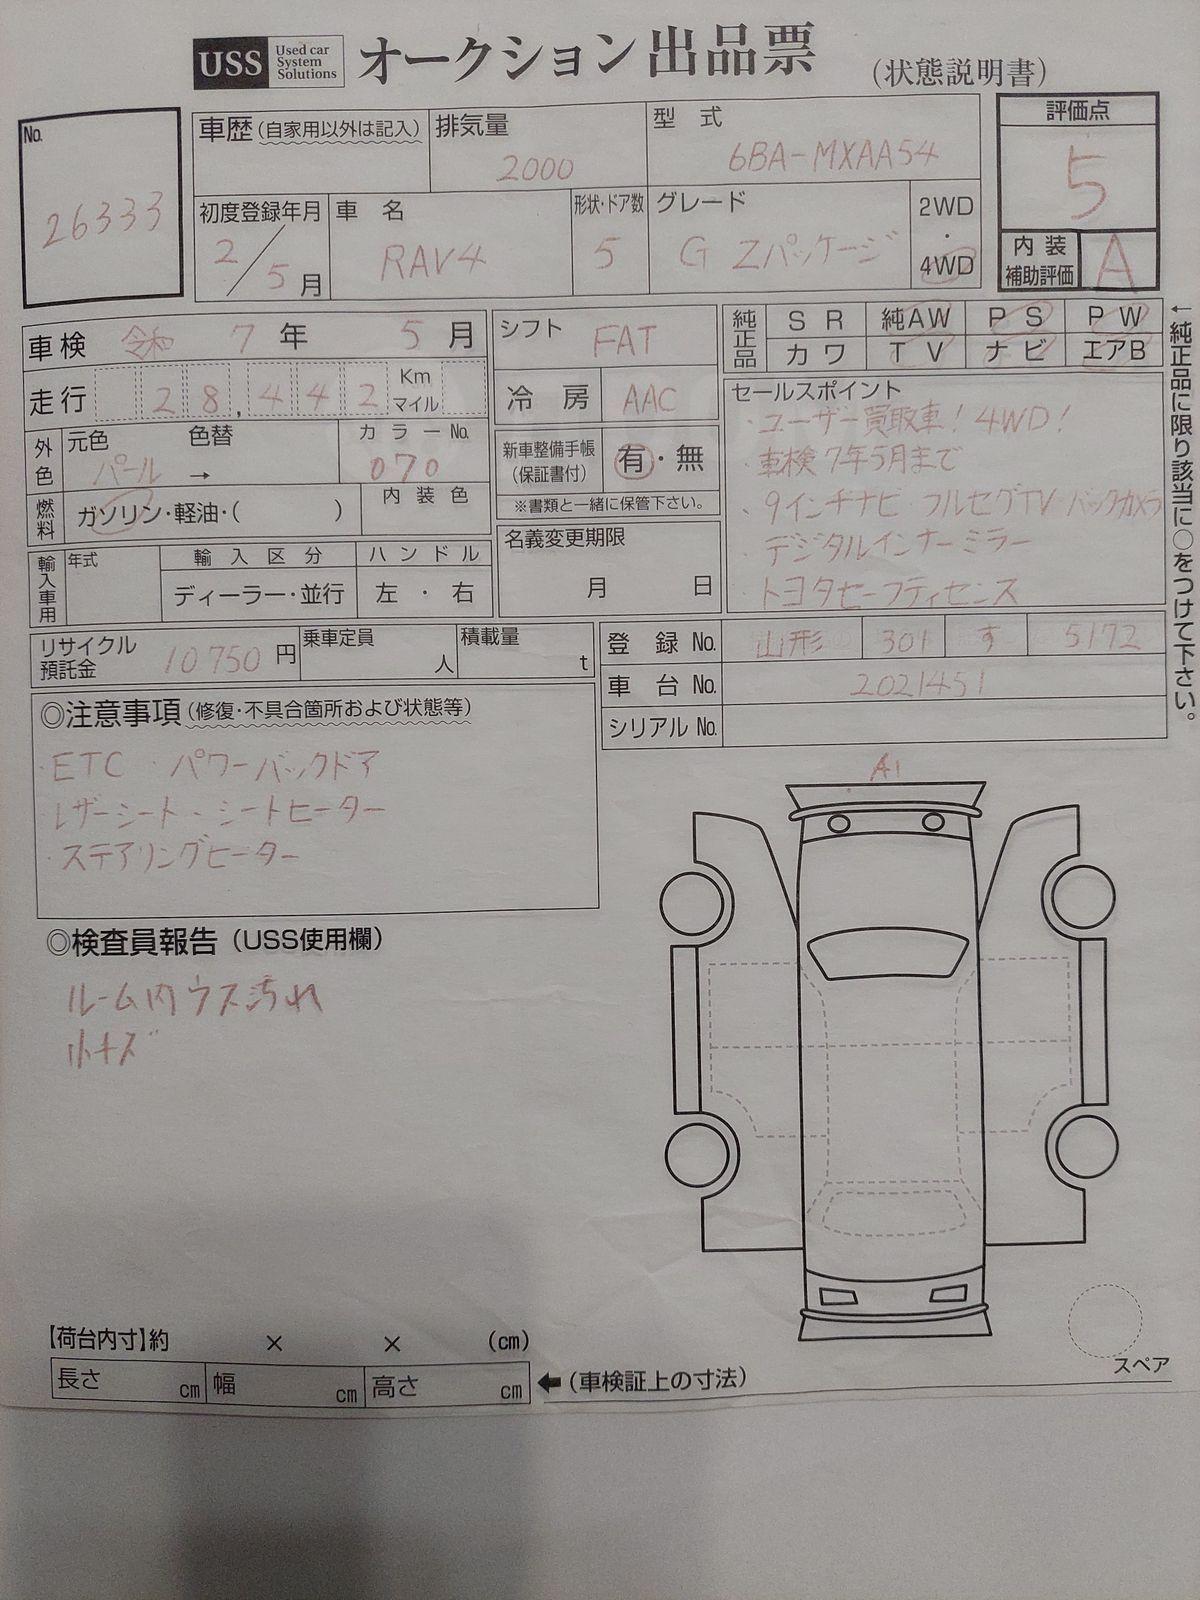 USS Used car System Solutions オークション出品票 (状態説明書)
No. 26333
車歴 (自家用以外は記入)
排気量 2000
型式 6BA-MXAA54
評価点 5
初度登録年月 2/5月
車名 RAV4
形状・ドア数 5
グレード G Zパッケージ
2WD・4WD
内装補助評価 A
車検 令和 7年 5月
シフト FAT
純正品 SR 純AW PS PW
カワ TV ナビ エアB
走行 28,442 Km マイル
冷房 AAC
セールスポイント
・ユーザー買取車!4WD!
・車検7年5月まで
・9インチナビ フルセグTV・バックカメラ
デジタルインナーミラー
・トヨタセーフティセンス
←純正品に限り該当に○をつけて下さい。
外色 元色 パール → 色替
カラーNo. 070
新車整備手帳(保証書付) 有・無
※書類と一緒に保管下さい。
燃料 ガソリン・軽油・( )
内装色
名義変更期限 月 日
輸入車用 年式
輸入区分 ディーラー・並行
ハンドル 左・右
リサイクル預託金 10750円
乗車定員 人
積載量 t
登録No. 山形 301 す 5172
車台No. 2021451
シリアルNo.
◎注意事項(修復・不具合箇所および状態等)
・ETC ・パワーバックドア
・レザーシート・シートヒーター
・ステアリングヒーター
A1
◎検査員報告(USS使用欄)
ルーム内ウス汚れ
小キズ
【荷台内寸】約 × × (cm)
長さ cm 幅 cm 高さ cm ←(車検証上の寸法)
スペア